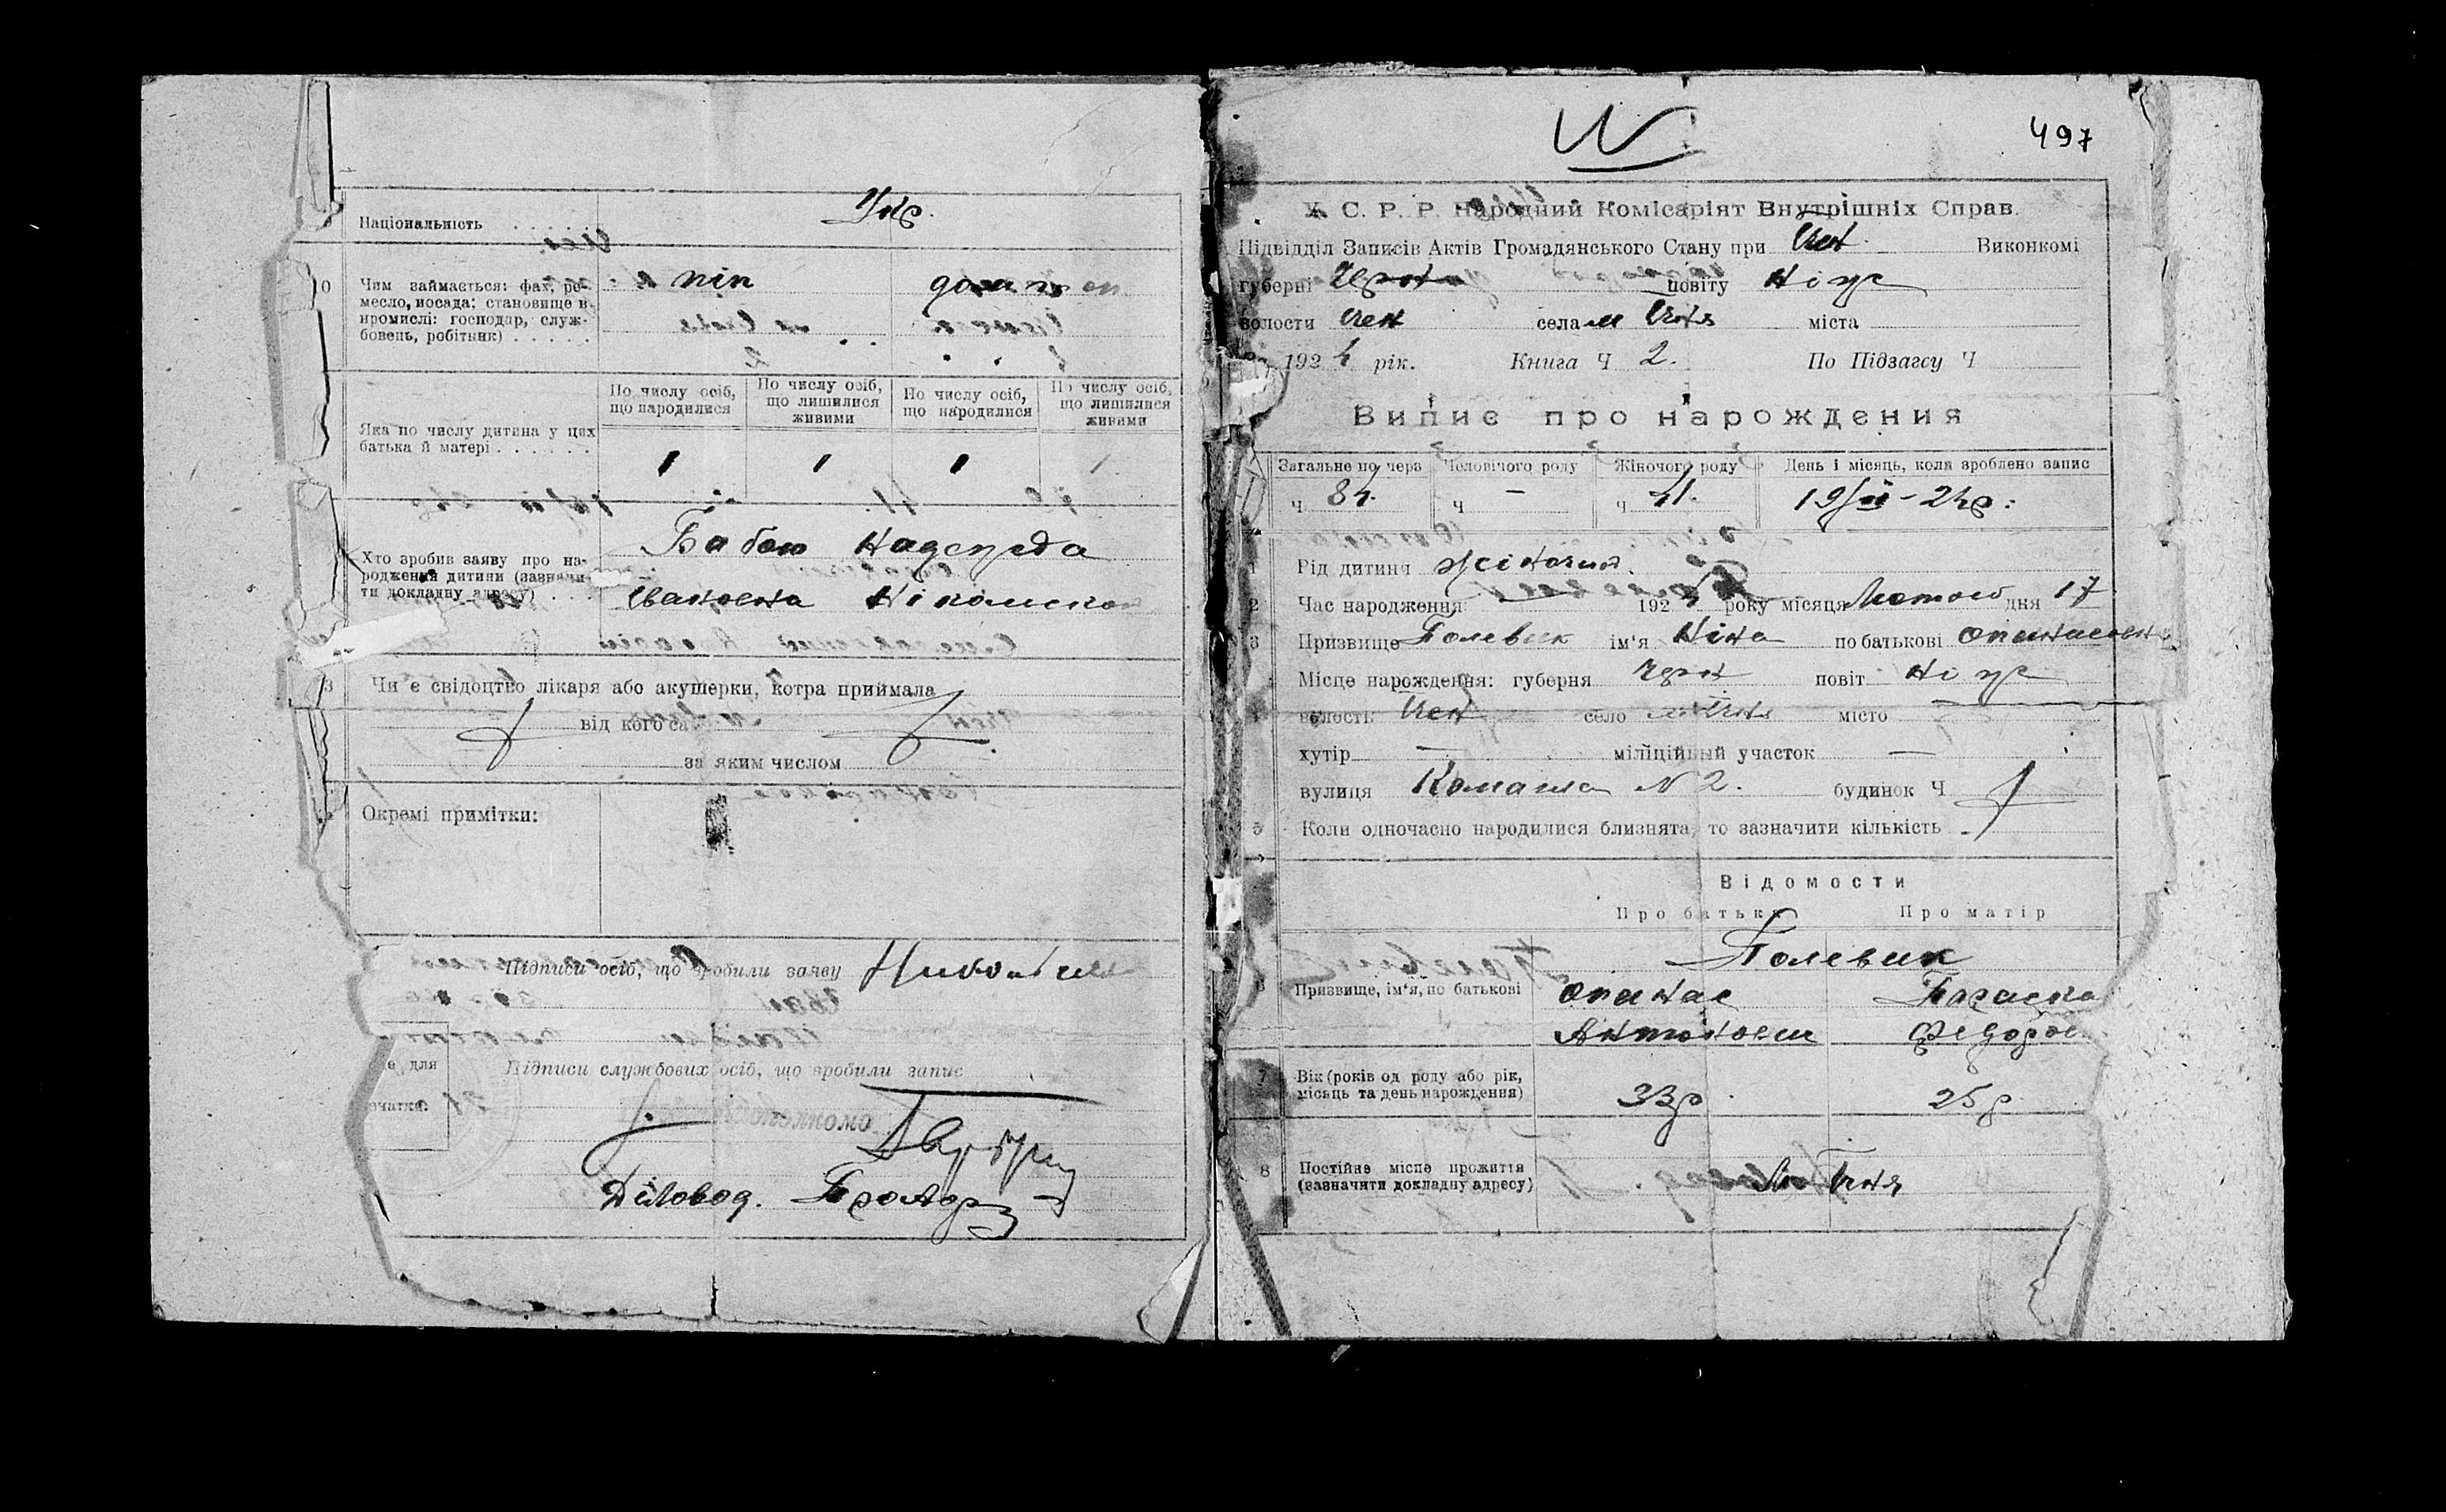 Національність
Укр.
10
Чим займається: фах, ре-
месло, посада; становище в
промислі: господар, служ-
бовець, робітник)
піп
Яка по числу дитина у цих
батька й матері
По числу осіб,
що народилися
По числу осіб,
що лишилися
живими
По числу осіб,
що народилися
По числу осіб,
що лишилися
живими
1 1 1 1
Хто зробив заяву про на-
родження дитини (зазначи-
ти докладну адресу)
Бабою Надежда
Ивановна
Чи є свідоцтво лікаря або акушерки, котра приймала
від кого са
за яким числом
Окремі примітки:
Підписи осіб, що зробили заяву
е для
ечатки:
Підписи службових осіб, що зробили запис
Діловод.
497
У. С. Р. Р. Народний Комісаріят Внутрішніх Справ.
Підвідділ Записів Актів Громадянського Стану при Ичен. Виконкомі
губерні Черн повіту Ніж
волости Ичен села м Ичня міста
192 4 рік. Книга Ч 2. По Підзагсу Ч
Випис про нарождения
Загальне по черз Человічого роду Жіночого роду День і місяць, коли зроблено запис
ч 84. ч — ч 41. 19/II-24р.
1 Рід дитини жіночий.
2 Час народження 192 4 року місяця Лютого дня 17
3 Призвище Полевик ім'я Ніна по батькові Опанасовн
Місце народження: губерня Черн повіт Ніж
4 волость Ичен село м Ичня місто
хутір — міліційный участок —
вулиця N 2. будинок Ч
5 Коли одночасно народилися близнята, то зазначити кількість
Відомости
Про батька Про матір
Полевик
6 Призвище, ім'я, по батькові Опанас Параска
Антонович Федоров
7 Вік (років од роду або рік,
місяць та день нарождения) 33р. 25 р.
8 Постійне місце прожиття
(зазначити докладну адресу) м Ичня